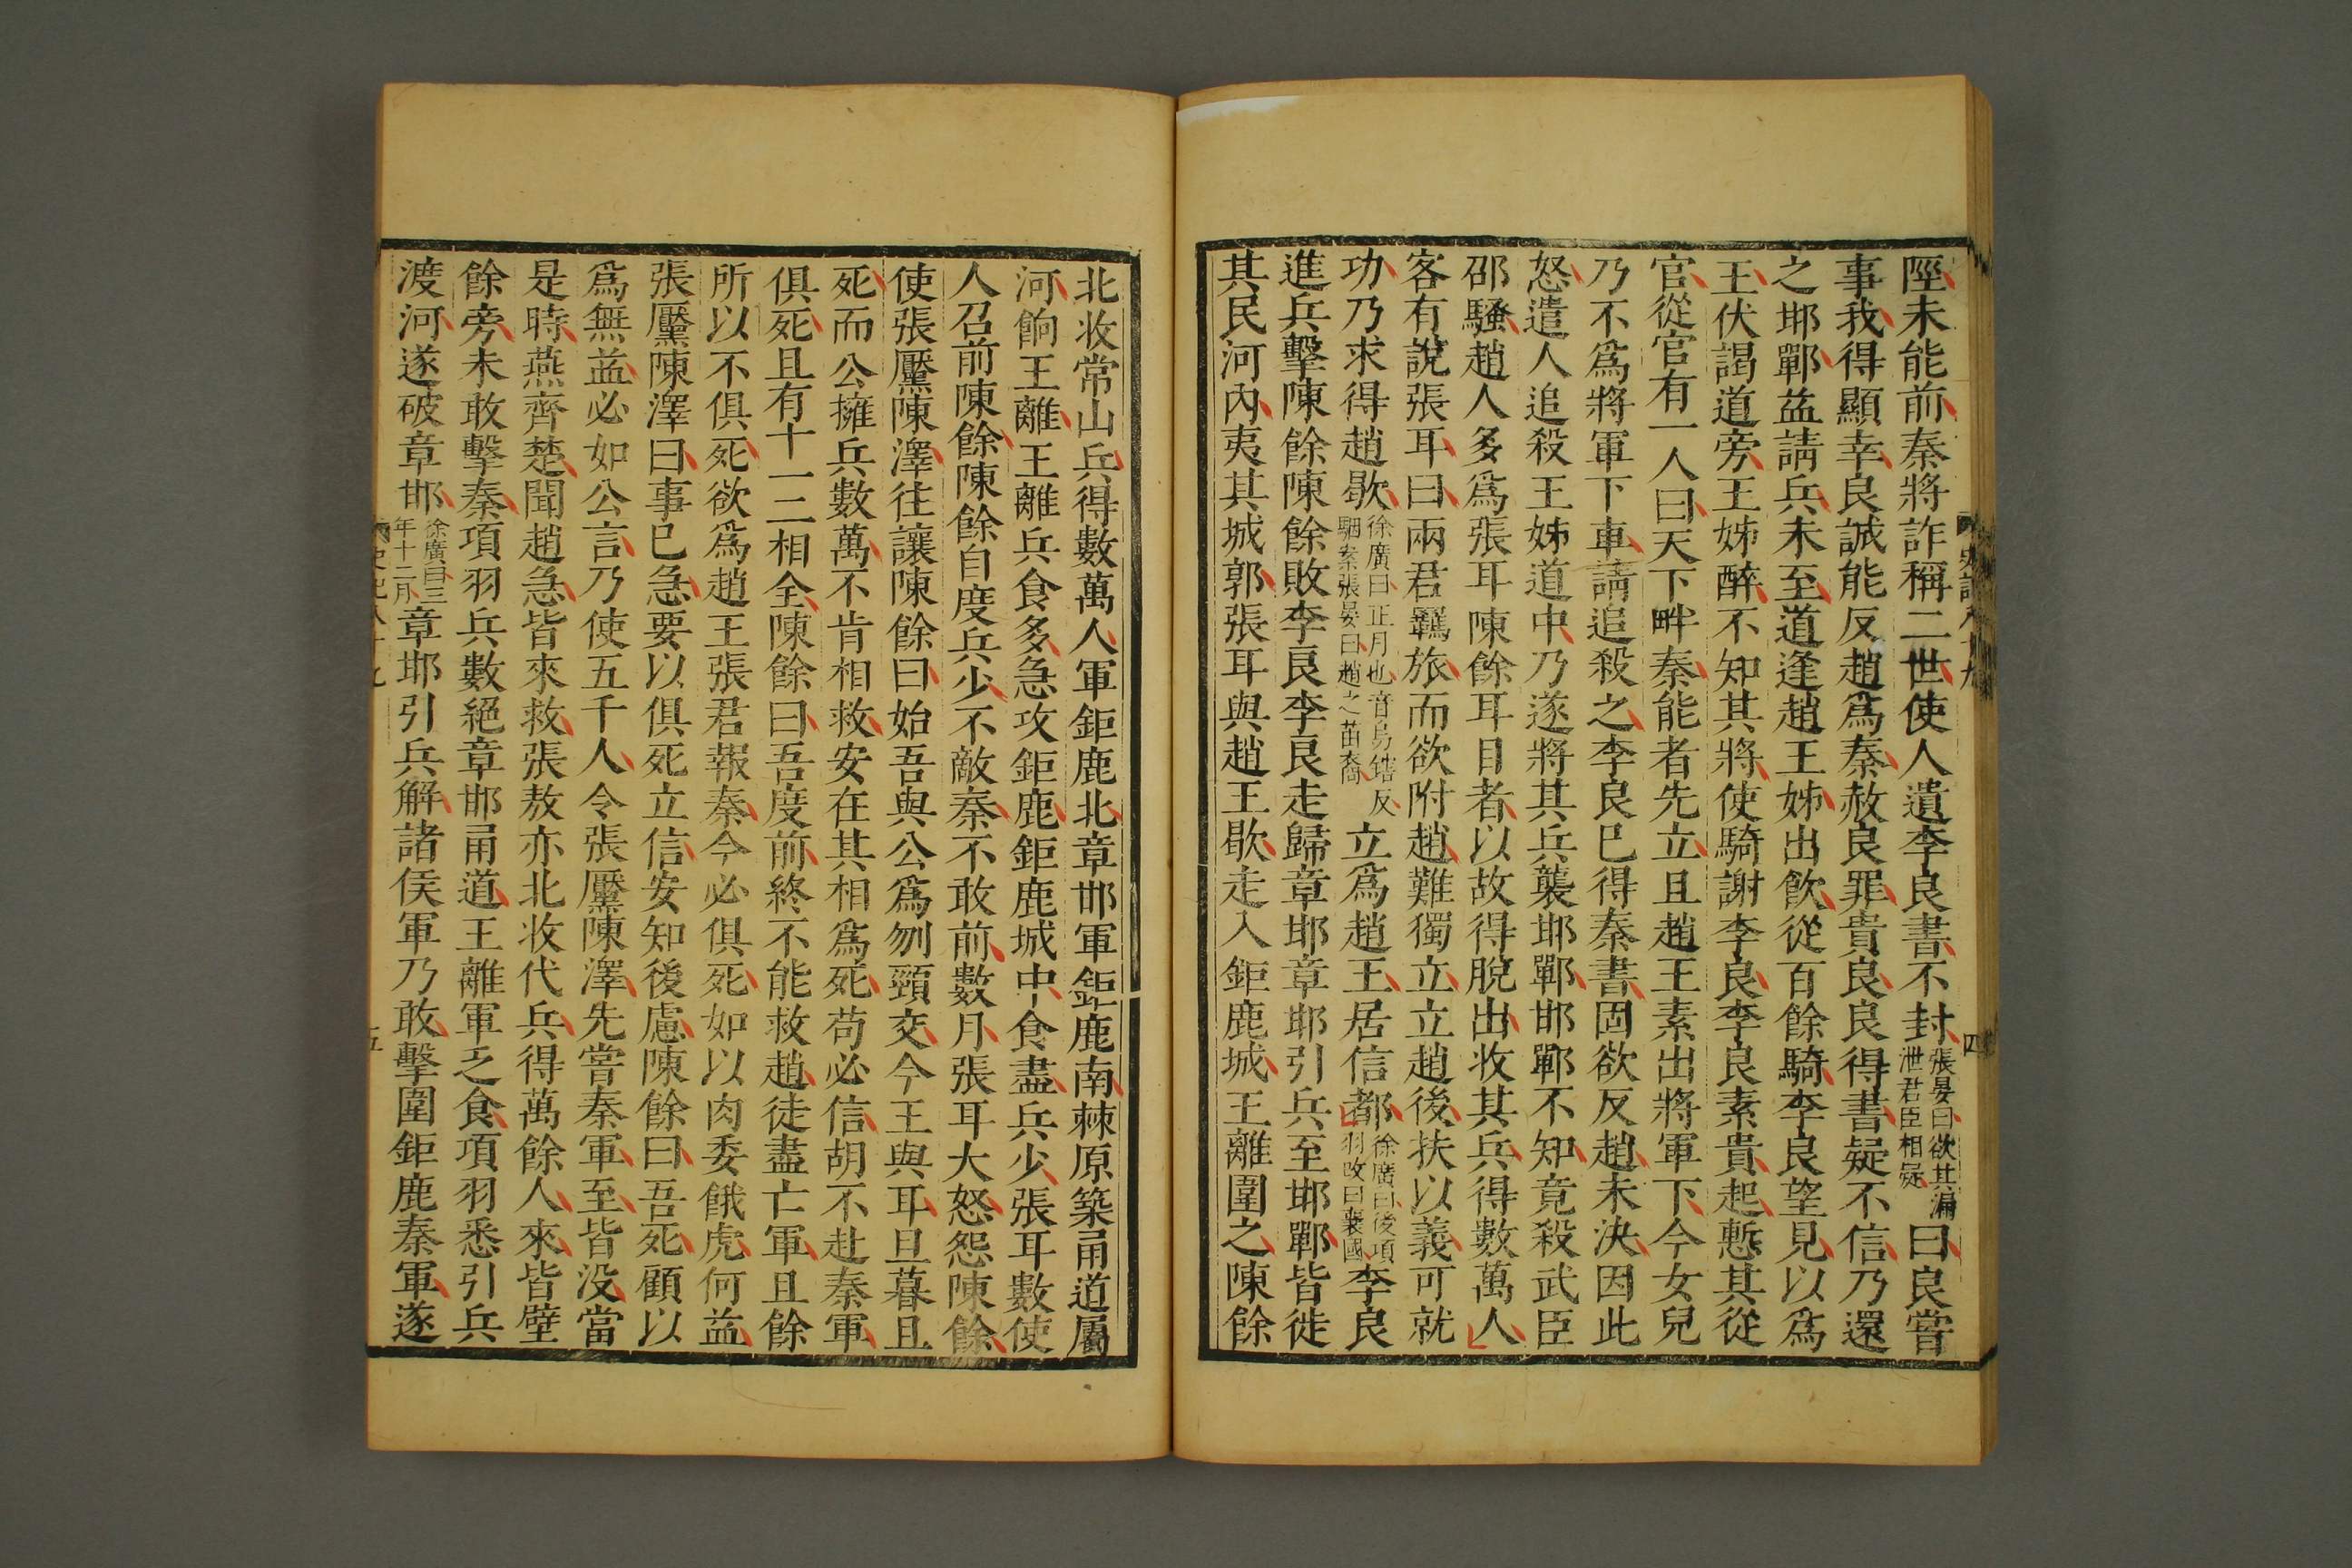 陘未能前秦將詐稱二世使人遺李良書不封張晏曰欲其漏泄君臣相疑曰良嘗
事我得顯幸良誠能反趙爲秦赦良罪貴良良得書疑不信乃還
之邯鄲益請兵未至道逢趙王姊出飲從百餘騎李良望見以爲
王伏謁道旁王姊醉不知其將使騎謝李良李良素貴起慙其從
官從官有一人曰天下畔秦能者先立且趙王素出將軍下今女兒
乃不爲將軍下車請追殺之李良已得秦書固欲反趙未決因此
怒遣人追殺王姊道中乃遂將其兵襲邯鄲邯鄲不知竟殺武臣
邵騷趙人多爲張耳陳餘耳目者以故得脫出收其兵得數萬人
客有說張耳曰兩君羈旅而欲附趙難獨立立趙後扶以義可就
功乃求得趙歇徐廣曰正月也音烏鎋反駰案張晏曰趙之苗裔立爲趙王居信都徐廣曰後項羽改曰襄國李良
進兵擊陳餘陳餘敗李良李良走歸章邯章邯引兵至邯鄲皆徙
其民河內夷其城郭張耳與趙王歇走入鉅鹿城王離圍之陳餘
史記八十九
四
北收常山兵得數萬人軍鉅鹿北章邯軍鉅鹿南棘原築甬道屬
河餉王離王離兵食多急攻鉅鹿鉅鹿城中食盡兵少張耳數使
人召前陳餘陳餘自度兵少不敵秦不敢前數月張耳大怒怨陳餘
使張黶陳澤往讓陳餘曰始吾與公爲刎頸交今王與耳旦暮且
死而公擁兵數萬不肯相救安在其相爲死苟必信胡不赴秦軍
俱死且有十一二相全陳餘曰吾度前終不能救趙徒盡亡軍且餘
所以不俱死欲爲趙王張君報秦今必俱死如以肉委餓虎何益
張黶陳澤曰事已急要以俱死立信安知後慮陳餘曰吾死顧以
爲無益必如公言乃使五千人令張黶陳澤先嘗秦軍至皆沒當
是時燕齊楚聞趙急皆來救張敖亦北收代兵得萬餘人來皆壁
餘旁未敢擊秦項羽兵數絕章邯甬道王離軍乏食項羽悉引兵
渡河遂破章邯徐廣曰三年十二月章邯引兵解諸侯軍乃敢擊圍鉅鹿秦軍遂
史記八十九
五